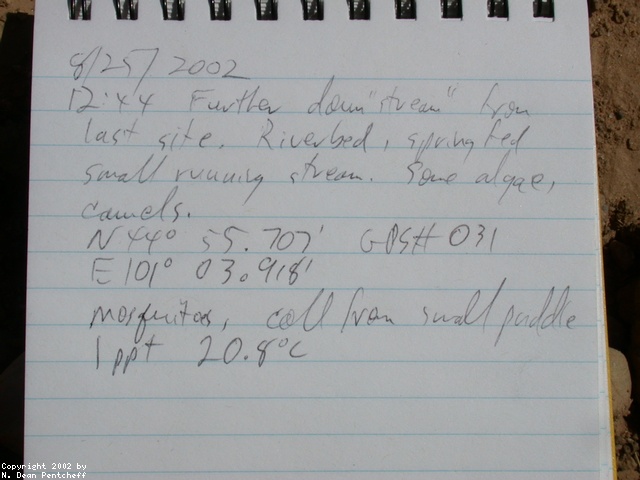 8/25/2002
12:44 Further down "stream" from
last site. Riverbed, spring fed
small running stream. Some algae,
camels.
N 44° 55.707' GPS# 031
E 101° 03.918'
mosquitos, coll from small puddle
1 ppt 20.8°C
Copyright 2002 by
N. Dean Pentcheff